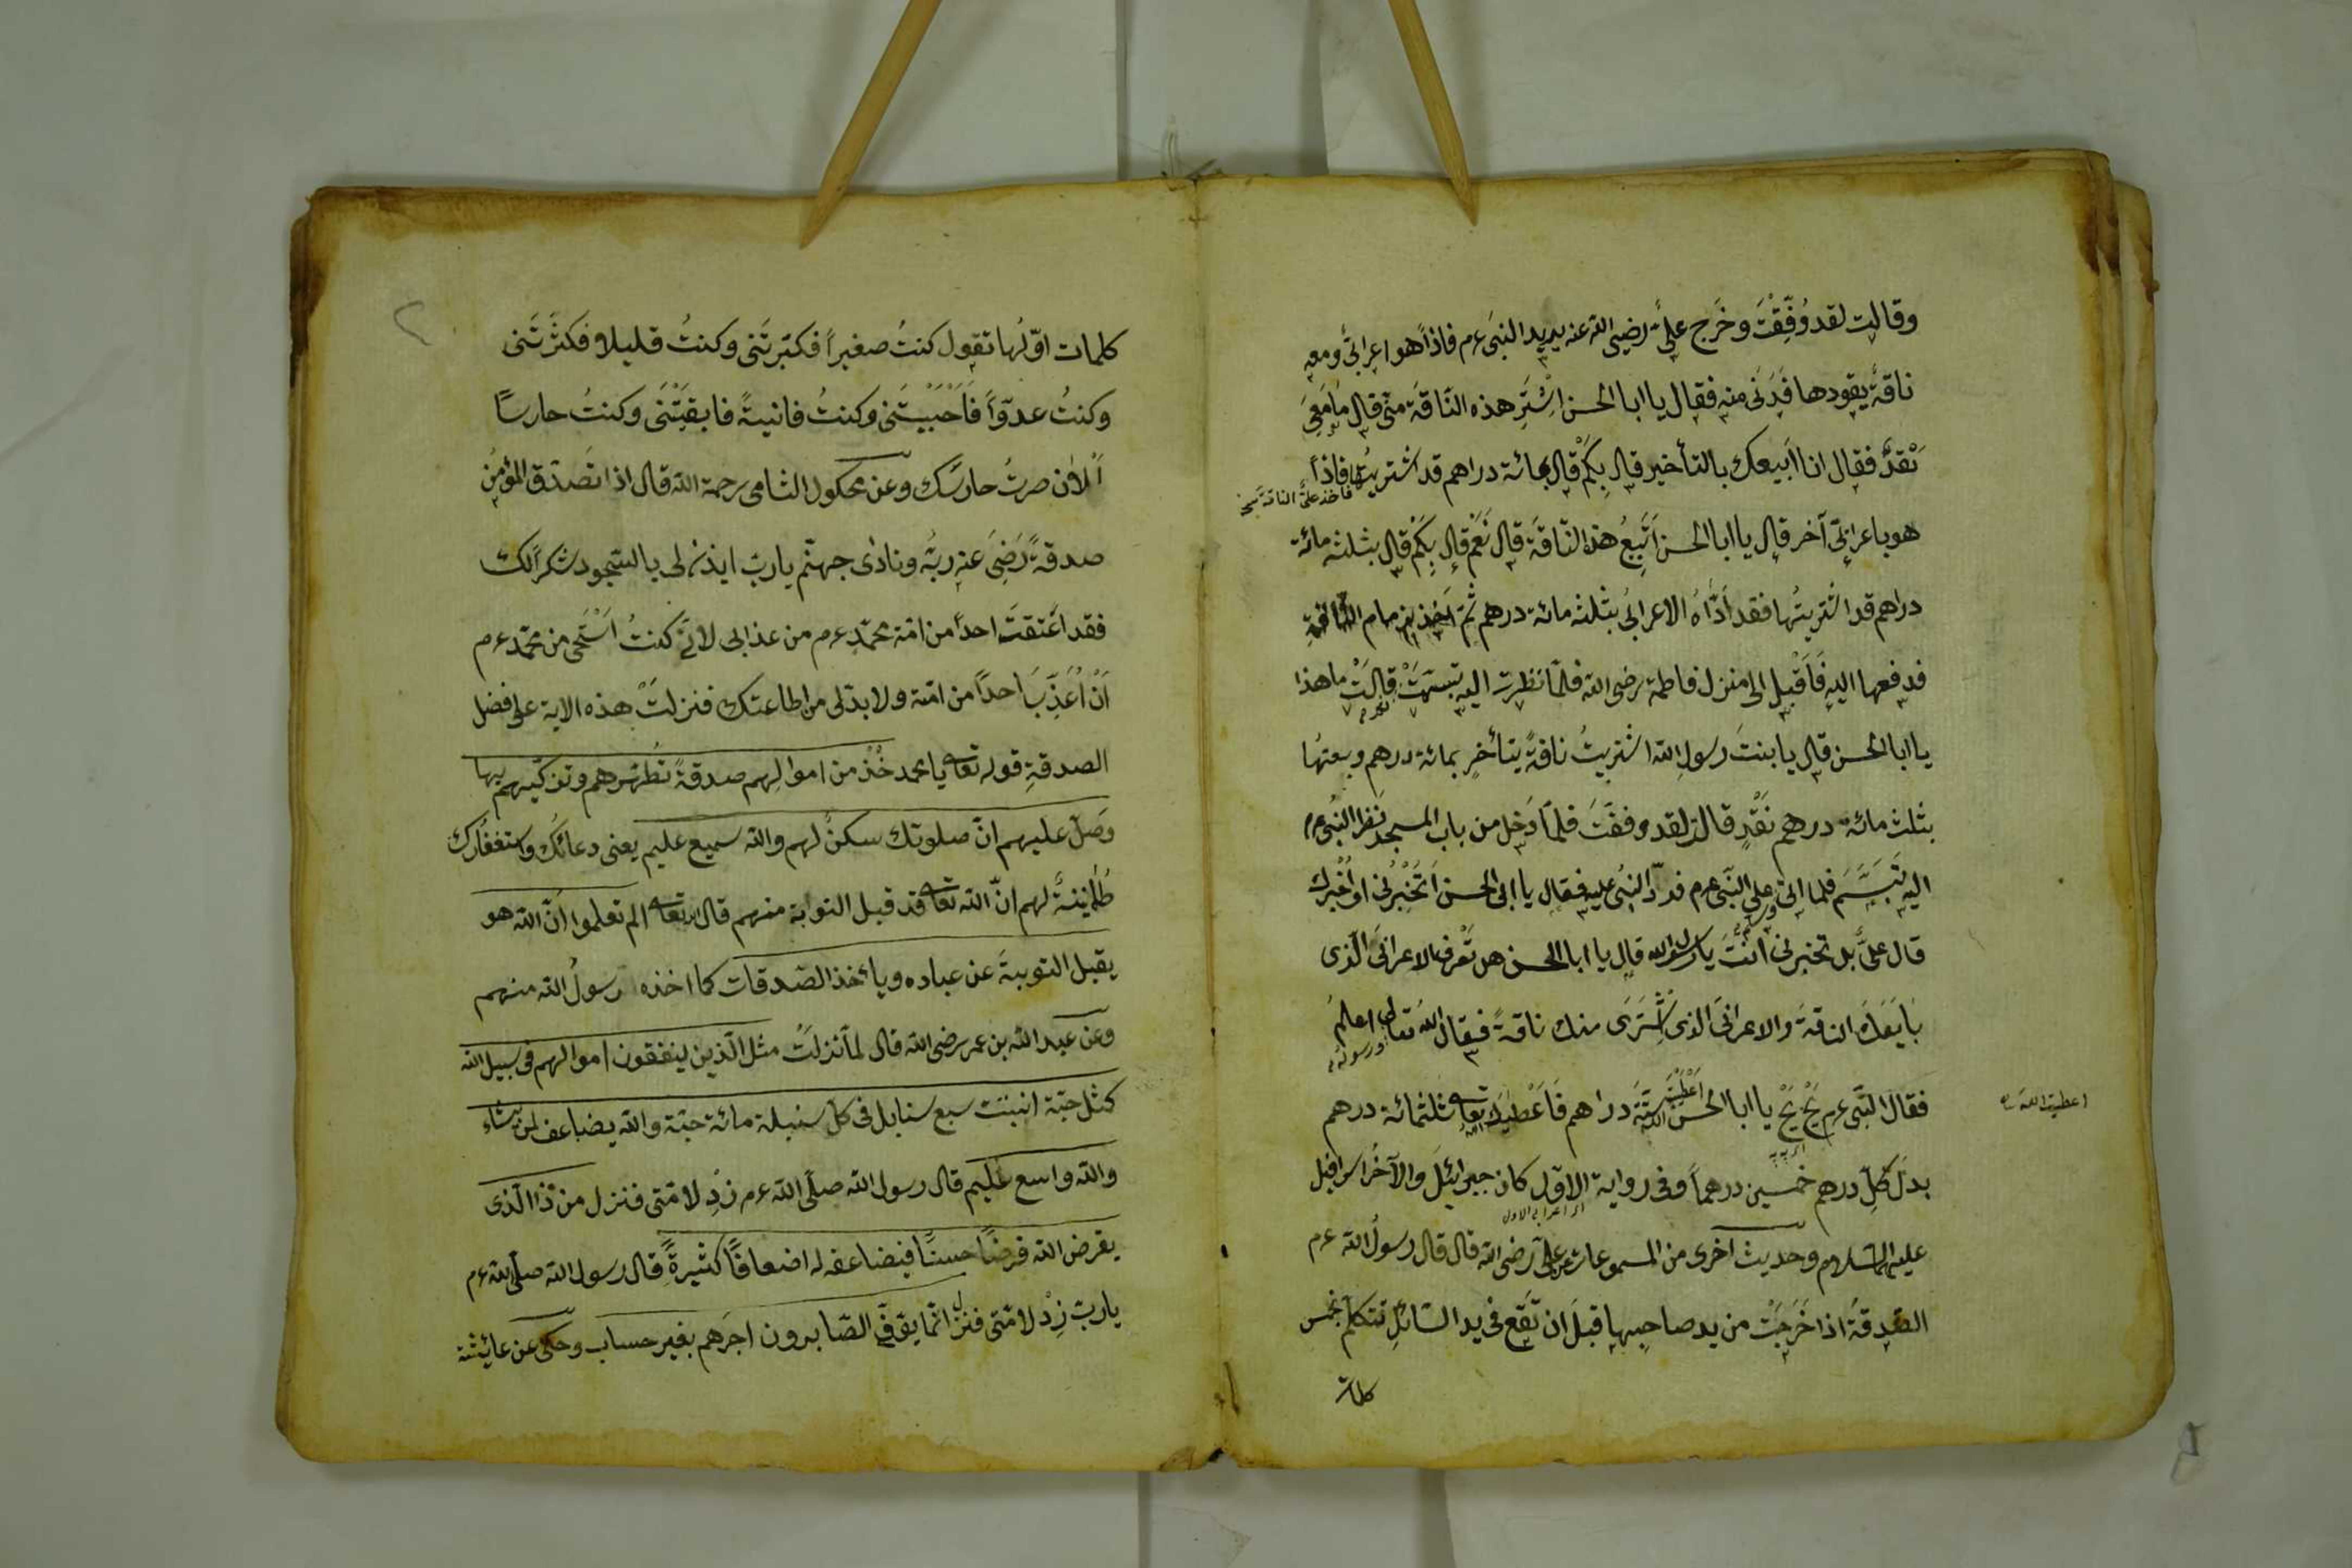 وقالت لقد وُفِّقْتَ وخَرج علىٌّ رضى الله عنه يريد النبىَ عم فاذاً هو اعرابىٌّ ومعه
ناقةٌ يقودها فَدَنَى منه فقال يا ابا الحسن اِشْتَرِ هذه النّاقةَ منّى قال مَا مَعِىَ
نَقْدٌ فقال انا ابيعك بالتأخير قال بِكَمْ قال بمائة دراهم قد اشتريتُها فاذاً
فاخذ علىٌّ الناقةَ
هو باعرابىّ آخر قال يا ابا الحسن اَتَبِيعُ هذه النّاقةَ قال نَعَمْ قال بِكَمْ قال بثلثه مائة
دراهم قد اشتريتُها فقد أدّاهُ الاعرابىُ بثلث مائة درهم ثمّ اخذ بزمام الناقةِ
فدفعها اليهِ فَاَقْبل الى منزل فاطمة رضى الله فلمّا نظرت اليه تبسّمتْ قالَتْ ما هذا
يا ابا الحسن قال يا بنتَ رسولِ الله اشتريتُ ناقةً بتأخرٍ بمائة درهم وبعتهُا
بثلث مائة درهم نَقْدٍ قالت لقد وفقتَ فلمّا دَخل من باب المسجد نظرا النبىُ عم
اليه تَبَسَّمَ فلما اتى على النّبى عم فردّ النبىُ عليه فقال يا ابى الحسن اَتُخْبِرُنى او اُخْبِرُك
قال علىٌّ بل تخبرنى انتَ يا رسول الله قال يا ابا الحسن هل تَعْرِف الاعرابىَ الّذى
بَايَعَكَ الناقةَ والاعرابىَ الذى اشْتَرَى منك ناقةً فقال اللهُ تعالى اعلمُ
ورسوله
فقال النّبى عم بَخْ بَخْ يا ابا الحسن اَعْطَيْتَ ستّةَ دراهم فَاَعْطَيك الله تعا ثلثمائة درهم
اعطيت الله
بدلَ كلِّ درهم خمسين درهماً وفى رواية الاوّل كان جبرائيلَ والآخر اسرافيل
اى اعرابى الاول
عليهما السّلام وحديث اخرى من المسموعات عن علىّ رضى الله قال قال رسولُ الله عم
الصّدقةُ اذا خَرَجَتْ من يد صاحبها قبلَ ان تَقَع فى يد السّائلِ تتكلّم بخمس
كلمات
كلمات اوّلُها تقول كنتُ صغيراً فكبّرتَنى وكنتُ قليلا فكثّرتَنى
وكنتُ عدوّاً فَاَحْبَبْتَنى وكنتُ فانيةً فابقيتَنى وكنتَ حارسًا
اَلْآن صرتُ حارسَك وعن مكحول الشامى رحمة الله قال اذا تَصَدَّق المؤمنُ
صدقةً رَضِىَ عنه ربُّه ونادى جهنّم يا ربّ ايذن لى بالسّجود شكراً لك
فقد اَعْتَقتَ احداً من امّة محمّدٍ عم من عذابى لانّى كنتُ اَسْتَحى من محمّد عم
اَنْ اُعَذِّبَ احداً من امّته ولا بدّ لى من اطاعتك فنزلتْ هذه الاية على فضل
الصدقةِ قوله تعا يا محمد خُذْ من اموالهم صدقةً تُطهّرهم وتزكّيهم بها
وصَلّ عليهم انّ صلوتك سكنٌ لهم والله سميع عليم يعنى دعائك واستغفارك
طُمَأنينةٌ لهم انّ الله تعا قد قبل التوابة منهم قال الله تعا الم تعلموا انّ الله هو
يقبل التوبةَ عن عباده ويأخذ الصّدقات كما اخذه رسولُ الله منهم
وعن عبد الله بن عمر رضى الله قال لما نزلَتْ مثل الّذين ينفقون اموالهم فى سبيل الله
كمثل حبّة انبتت سبع سنابل فى كلّ سنبلة مائة حبّة والله يضاعف لمن يشاء
والله واسع عليم قال رسول الله صلّى الله عم زِدِ لامّتى فنزل من ذا الّذى
يقرض الله قرضًا حسنًا فيضاعفه له اضعافًا كثيرةً قال رسول الله صلّى الله عم
يا ربّ زِدْ لامّتى فنزل انّما يوفّى الصّابرون اجرَهم بغير حساب وحكى عن عائشة
٢